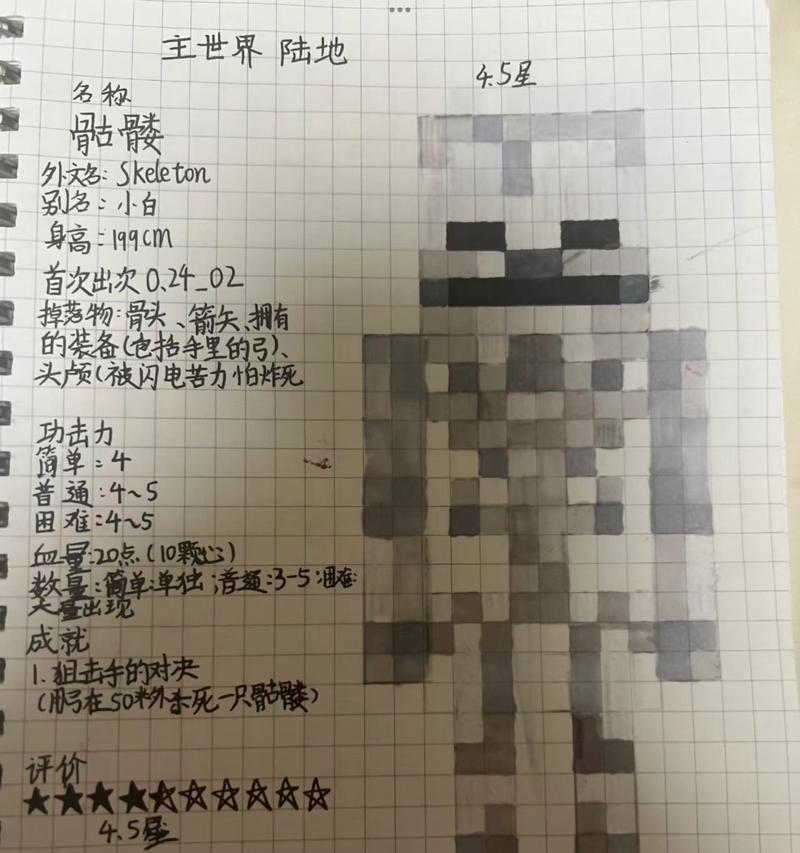 主世界 陆地
4.5星
名称
骷髅
外文名: Skeleton
别名: 小白
身高: 199cm
首次出次 0.24_02
掉落物: 骨头、箭矢、拥有
的装备(包括手里的弓)、
头颅(被闪电苦力怕炸死
功击力
简单: 4
普通: 4~5
困难: 4~5
血量: 20点 (10颗心)
数量: 简单: 单独; 普通: 3-5 困难:
大量出现
成就
1. 狙击手的对决
(用弓在50米外杀死一只骷髅)
评价
★★★★☆☆☆☆☆
4.5星